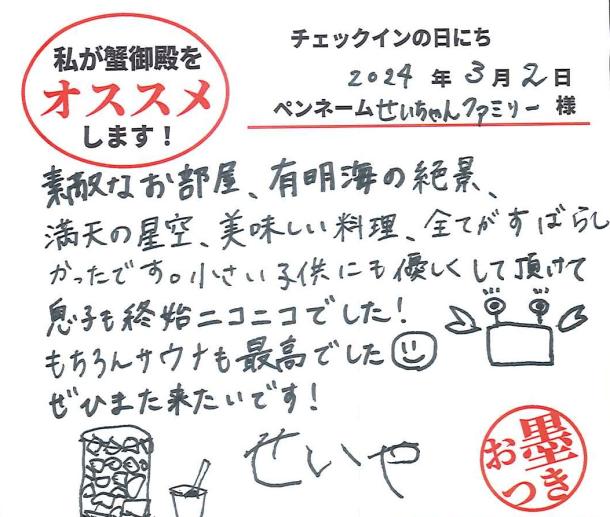 私が蟹御殿を
オススメ
します！
チェックインの日にち
2024年3月2日
ペンネームせいちゃんファミリー様
素敵なお部屋、有明海の絶景、
満天の星空、美味しい料理、全てがすばらし
かったです。小さい子供にも優しくして頂けて
息子も終始ニコニコでした！
もちろんサウナも最高でした
ぜひまた来たいです！
せいや
お墨つき